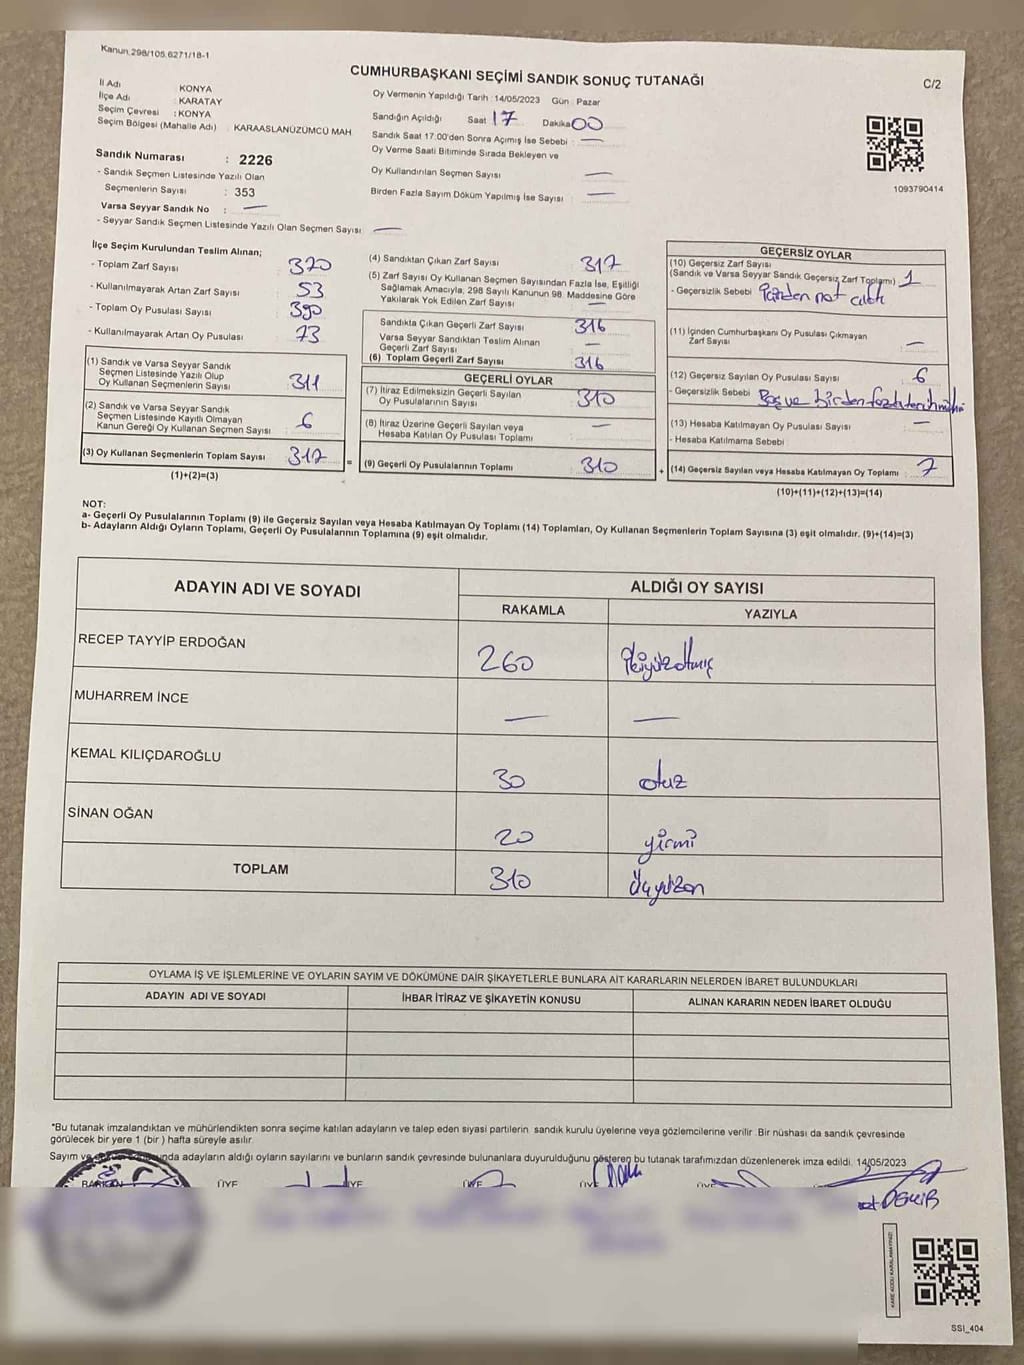 Kanun,298/105,6271/18-1
CUMHURBAŞKANI SEÇİMİ SANDIK SONUÇ TUTANAĞI
C/2
İl Adı KONYA
İlçe Adı : KARATAY
Seçim Çevresi : KONYA
Seçim Bölgesi (Mahalle Adı) : KARAASLANÜZÜMCÜ MAH
Sandık Numarası : 2226
- Sandık Seçmen Listesinde Yazılı Olan
Seçmenlerin Sayısı : 353
Varsa Seyyar Sandık No : —
- Seyyar Sandık Seçmen Listesinde Yazılı Olan Seçmen Sayısı —
Oy Vermenin Yapıldığı Tarih :14/05/2023 Gün : Pazar
Sandığın Açıldığı Saat 17 Dakika 00
Sandık Saat 17:00'den Sonra Açımış İse Sebebi : —
Oy Verme Saati Bitiminde Sırada Bekleyen ve
Oy Kullandırılan Seçmen Sayısı —
Birden Fazla Sayım Döküm Yapılmış İse Sayısı : —
1093790414
İlçe Seçim Kurulundan Teslim Alınan;
- Toplam Zarf Sayısı 370
- Kullanılmayarak Artan Zarf Sayısı : 53
- Toplam Oy Pusulası Sayısı : 390
- Kullanılmayarak Artan Oy Pusulası : 73
(1) Sandık ve Varsa Seyyar Sandık
Seçmen Listesinde Yazılı Olup
Oy Kullanan Seçmenlerin Sayısı : 311
(2) Sandık ve Varsa Seyyar Sandık
Seçmen Listesinde Kayıtlı Olmayan
Kanun Gereği Oy Kullanan Seçmen Sayısı : 6
(3) Oy Kullanan Seçmenlerin Toplam Sayısı : 317
(1)+(2)=(3)
(4) Sandıktan Çıkan Zarf Sayısı : 317
(5) Zarf Sayısı Oy Kullanan Seçmen Sayısından Fazla İse, Eşitliği
Sağlamak Amacıyla, 298 Sayılı Kanunun 98. Maddesine Göre
Yakılarak Yok Edilen Zarf Sayısı : —
Sandıkta Çıkan Geçerli Zarf Sayısı : 316
Varsa Seyyar Sandıktan Teslim Alınan
Geçerli Zarf Sayısı : —
(6) Toplam Geçerli Zarf Sayısı : 316
GEÇERLİ OYLAR
(7) İtiraz Edilmeksizin Geçerli Sayılan
Oy Pusulalarının Sayısı : 310
(8) İtiraz Üzerine Geçerli Sayılan veya
Hesaba Katılan Oy Pusulası Toplamı : —
= (9) Geçerli Oy Pusulalarının Toplamı : 310 +
GEÇERSİZ OYLAR
(10) Geçersiz Zarf Sayısı
(Sandık ve Varsa Seyyar Sandık Geçersiz Zarf Toplamı) : 1
- Geçersizlik Sebebi : İçinden not çıktı
(11) İçinden Cumhurbaşkanı Oy Pusulası Çıkmayan
Zarf Sayısı : —
(12) Geçersiz Sayılan Oy Pusulası Sayısı : 6
- Geçersizlik Sebebi : Boş ve birden fazla tercih
(13) Hesaba Katılmayan Oy Pusulası Sayısı : —
- Hesaba Katılmama Sebebi :
(14) Geçersiz Sayılan veya Hesaba Katılmayan Oy Toplamı : 7
(10)+(11)+(12)+(13)=(14)
NOT:
a- Geçerli Oy Pusulalarının Toplamı (9) ile Geçersiz Sayılan veya Hesaba Katılmayan Oy Toplamı (14) Toplamları, Oy Kullanan Seçmenlerin Toplam Sayısına (3) eşit olmalıdır. (9)+(14)=(3)
b- Adayların Aldığı Oyların Toplamı, Geçerli Oy Pusulalarının Toplamına (9) eşit olmalıdır.
ADAYIN ADI VE SOYADI ALDIĞI OY SAYISI
RAKAMLA YAZIYLA
RECEP TAYYİP ERDOĞAN 260 ikiyüzaltmış
MUHARREM İNCE — —
KEMAL KILIÇDAROĞLU 30 otuz
SİNAN OĞAN 20 yirmi
TOPLAM 310 üçyüzon
OYLAMA İŞ VE İŞLEMLERİNE VE OYLARIN SAYIM VE DÖKÜMÜNE DAİR ŞİKAYETLERLE BUNLARA AİT KARARLARIN NELERDEN İBARET BULUNDUKLARI
ADAYIN ADI VE SOYADI İHBAR İTİRAZ VE ŞİKAYETİN KONUSU ALINAN KARARIN NEDEN İBARET OLDUĞU
*Bu tutanak imzalandıktan ve mühürlendikten sonra seçime katılan adayların ve talep eden siyasi partilerin sandık kurulu üyelerine veya gözlemcilerine verilir. Bir nüshası da sandık çevresinde
görülecek bir yere 1 (bir ) hafta süreyle asılır.
Sayım ve adayların aldığı oyların sayılarını ve bunların sandık çevresinde bulunanlara duyurulduğunu gösteren bu tutanak tarafımızdan düzenlenerek imza edildi. 14/05/2023
BAŞKAN ÜYE ÜYE ÜYE ÜYE ÜYE
KARE KODU KARALAMAYINIZ!
SSI_404